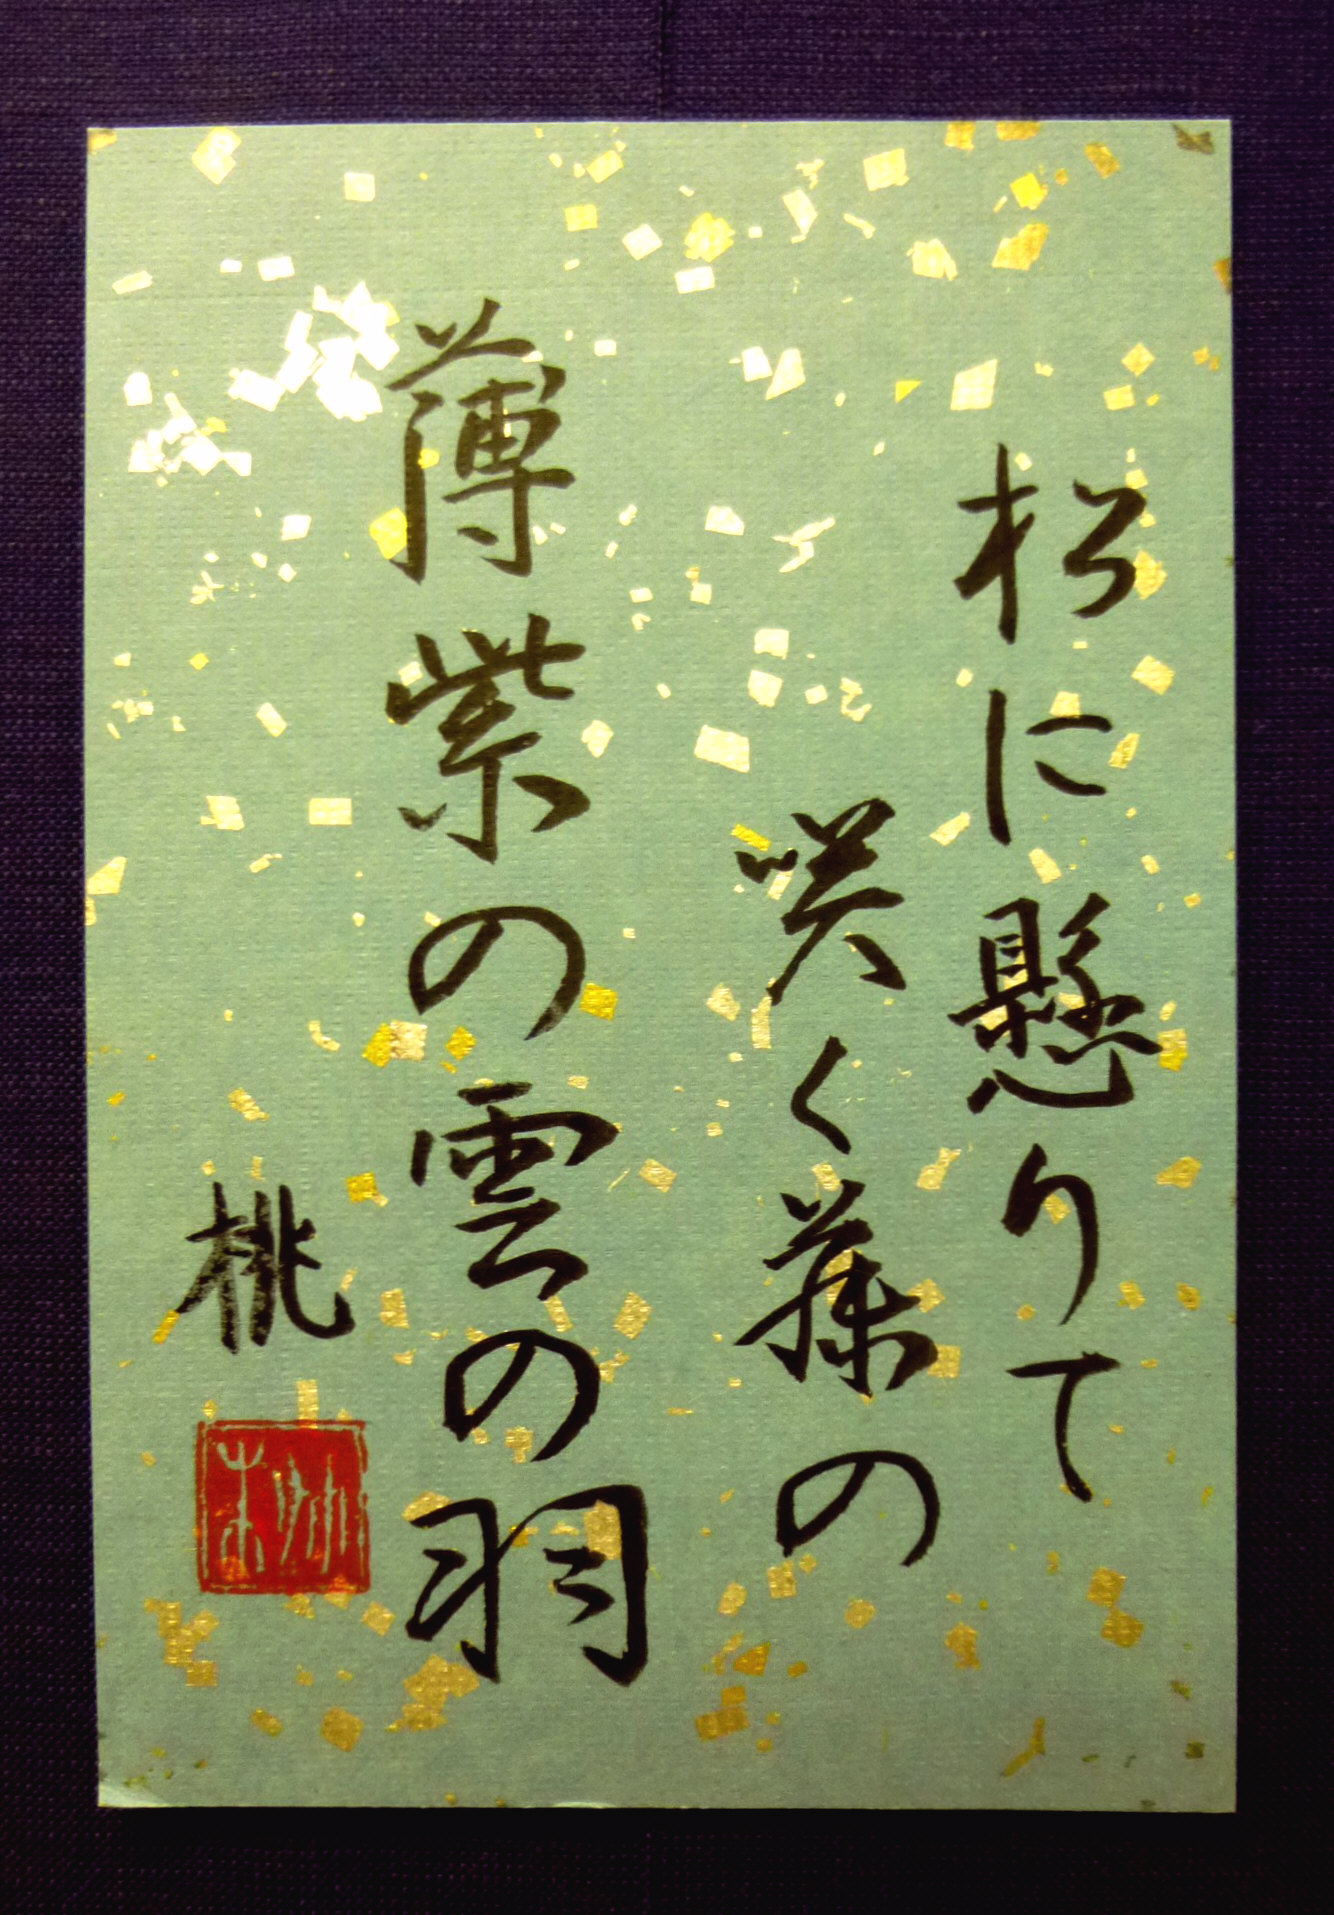 松に懸りて
咲く藤の
薄紫の雲の羽
桃